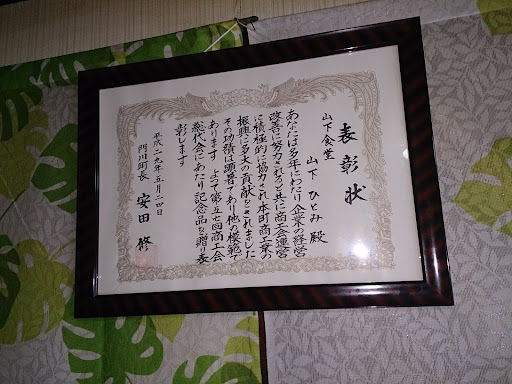 表彰状
山下食堂
山下 ひとみ 殿
あなたは多年にわたり企業の経営
改善に努力されると共に商工会運営
に積極的に協力され本町商工業の
振興に多大の貢献をされました
その功績は顕著であり他の模範で
あります よって第五七回商工会
総代会にあたり記念品を贈り表
彰します
平成二九年五月二四日
門川町長 安田 修